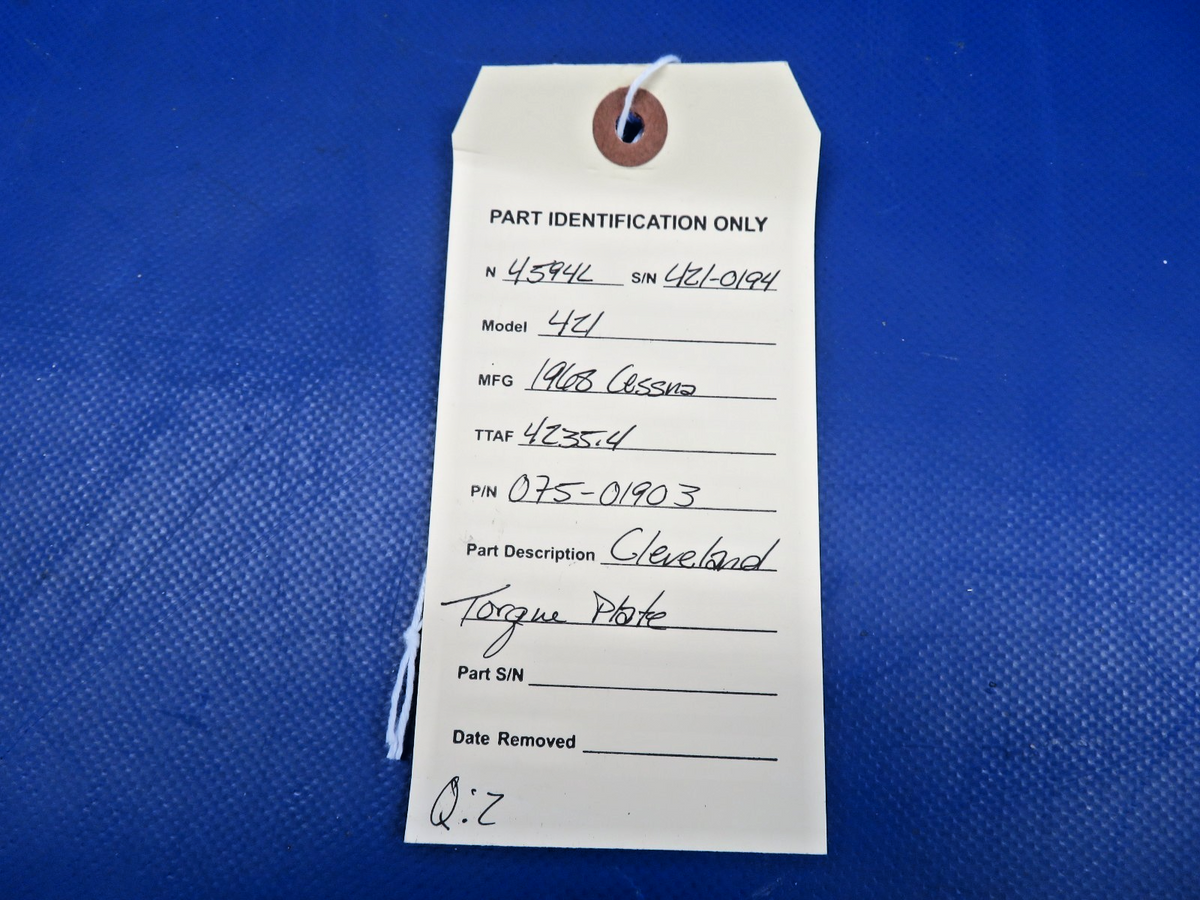 PART IDENTIFICATION ONLY
N 4594L S/N 421-0194
Model 421
MFG 1968 Cessna
TTAF 4235.4
P/N 075-01903
Part Description Cleveland
Torque Plate
Part S/N
Date Removed
Q:2